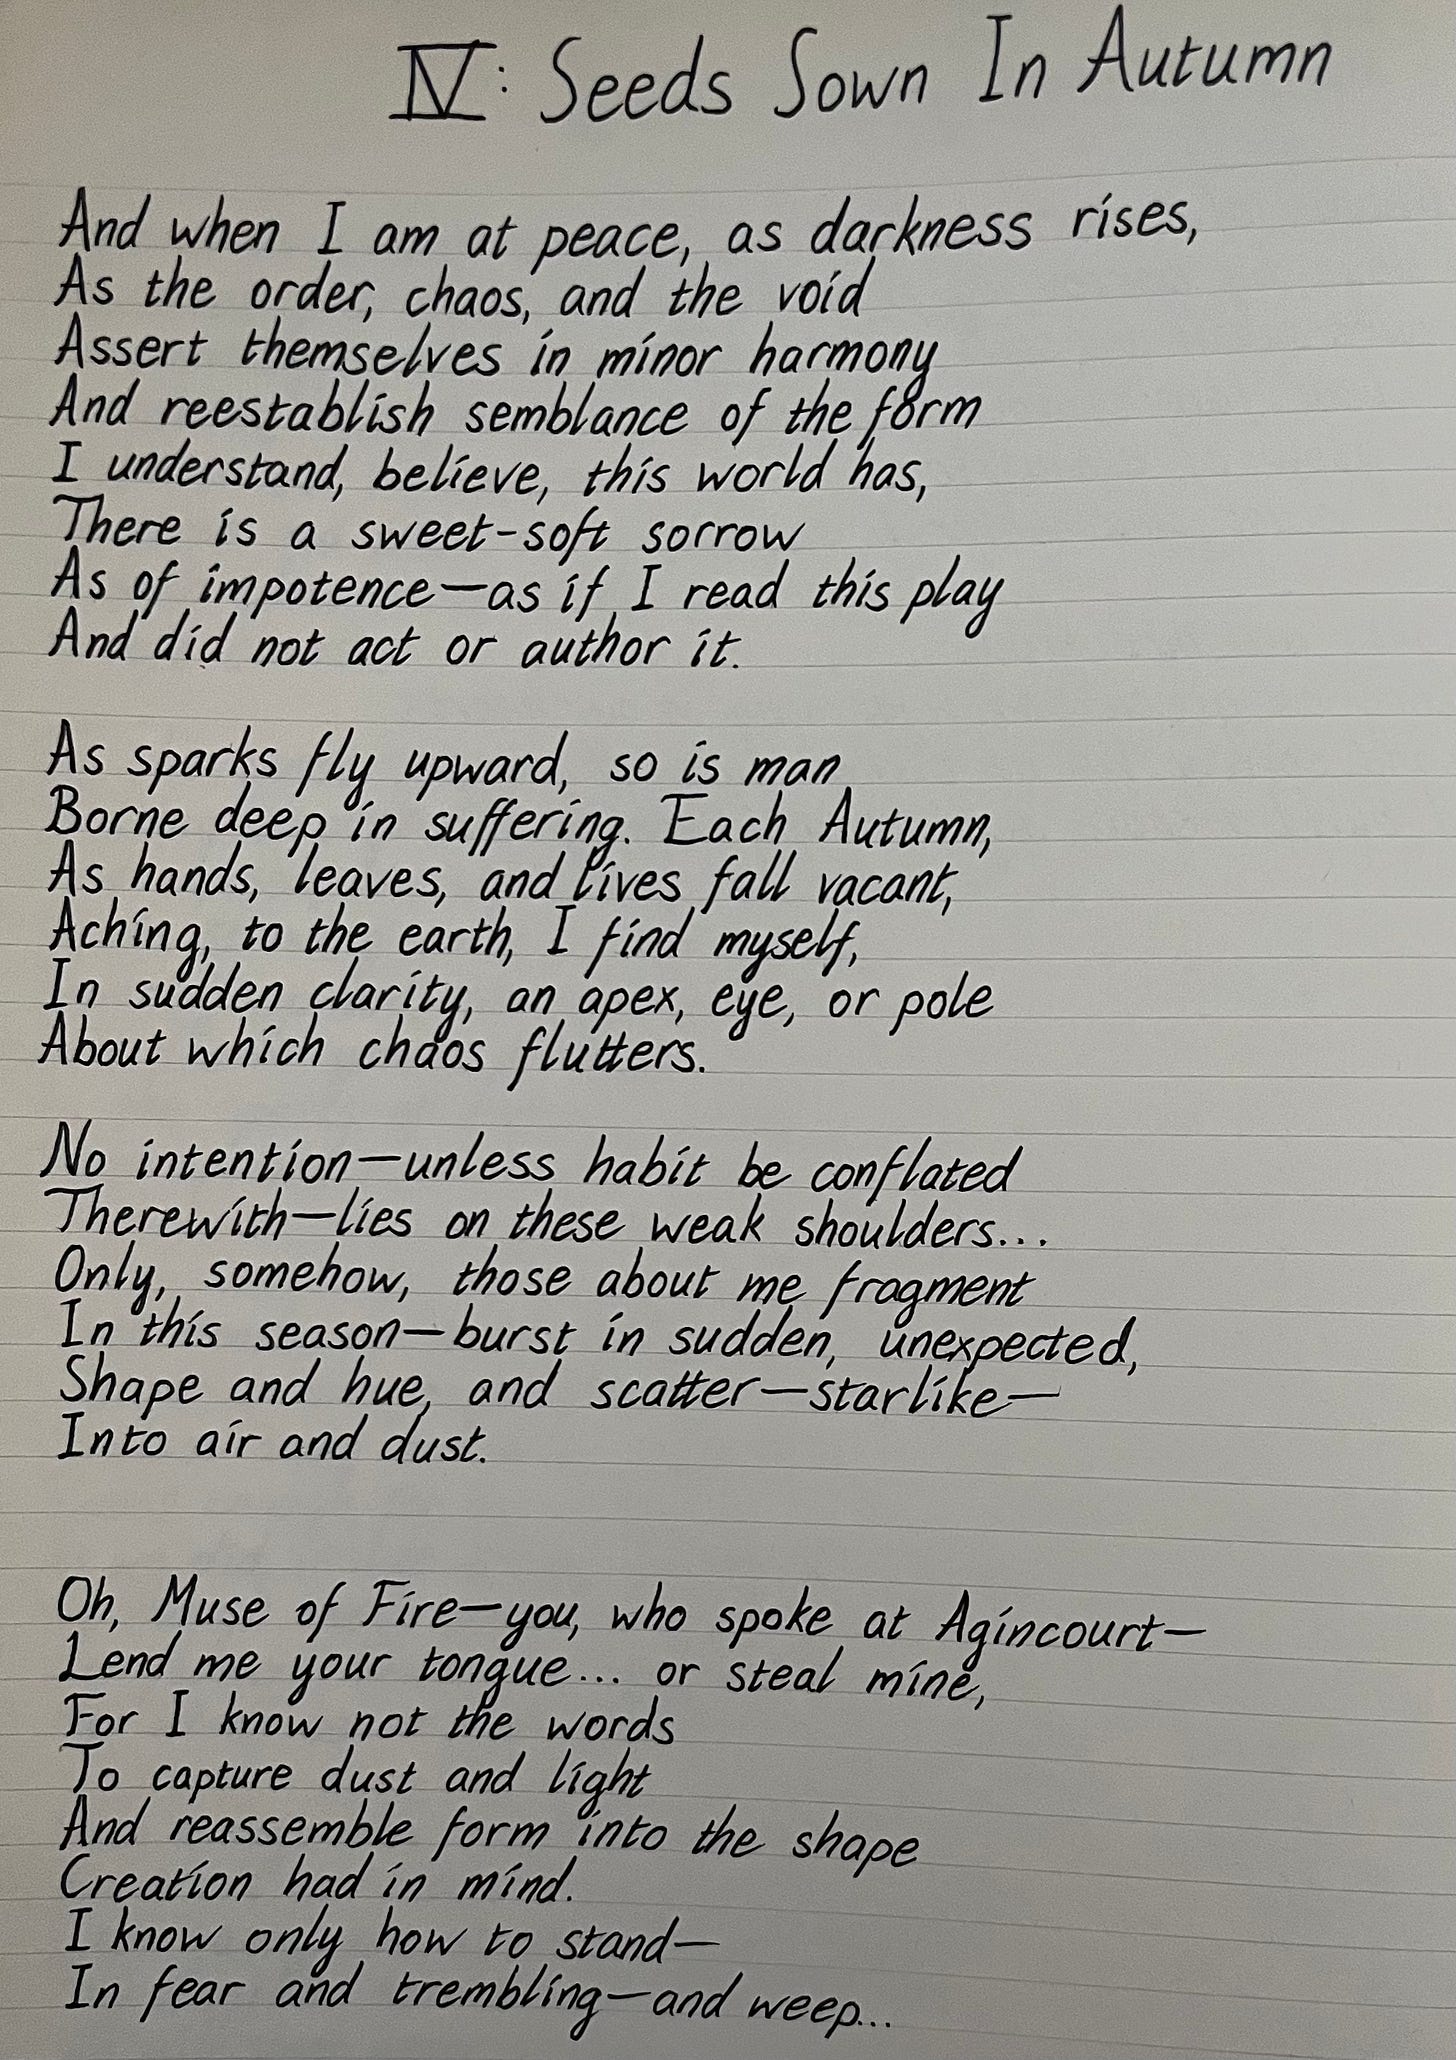 IV: Seeds Sown In Autumn
And when I am at peace, as darkness rises,
As the order, chaos, and the void
Assert themselves in minor harmony
And reestablish semblance of the form
I understand, believe, this world has,
There is a sweet-soft sorrow
As of impotence—as if I read this play
And did not act or author it.
As sparks fly upward, so is man
Borne deep in suffering. Each Autumn,
As hands, leaves, and lives fall vacant,
Aching, to the earth, I find myself,
In sudden clarity, an apex, eye, or pole
About which chaos flutters.
No intention—unless habit be conflated
Therewith—lies on these weak shoulders...
Only, somehow, those about me fragment
In this season—burst in sudden, unexpected,
Shape and hue, and scatter—starlike—
Into air and dust.
Oh, Muse of Fire—you, who spoke at Agincourt—
Lend me your tongue... or steal mine,
For I know not the words
To capture dust and light
And reassemble form into the shape
Creation had in mind.
I know only how to stand—
In fear and trembling—and weep...